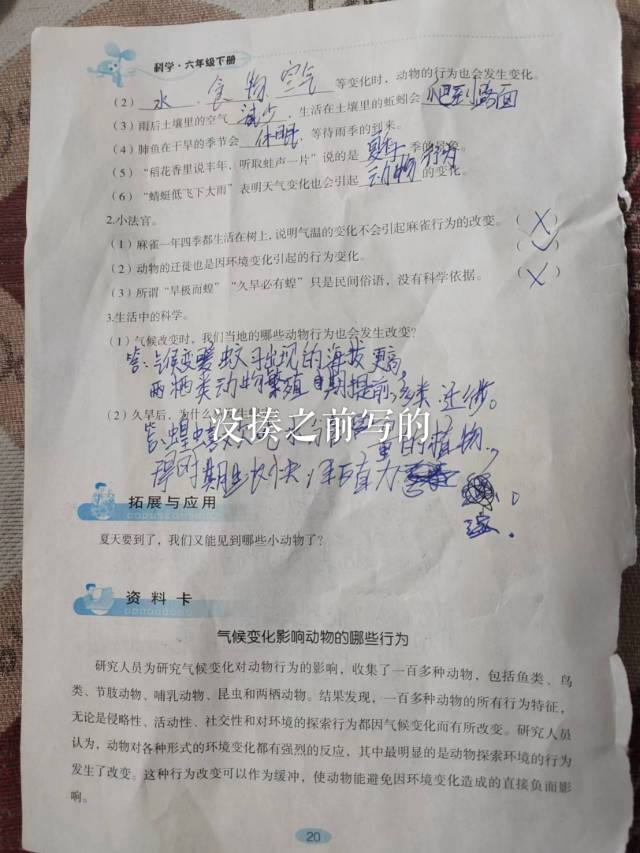 科学·六年级下册
(2) 水 食物 空气 等变化时，动物的行为也会发生变化。
(3) 雨后土壤里的空气 减少 ，生活在土壤里的蚯蚓会 爬到路面
(4) 肺鱼在干旱的季节会 休眠 ，等待雨季的到来。
(5) “稻花香里说丰年，听取蛙声一片”说的是 夏 季的现象。
(6) “蜻蜓低飞下大雨”表明天气变化也会引起 动物行为 的变化。
2.小法官。
(1) 麻雀一年四季都生活在树上，说明气温的变化不会引起麻雀行为的改变。 (✗)
(2) 动物的迁徙也是因环境变化引起的行为变化。 (✓)
(3) 所谓“旱极而蝗”“久旱必有蝗”只是民间俗语，没有科学依据。 (✗)
3.生活中的科学。
(1) 气候改变时，我们当地的哪些动物行为也会发生改变？
答：气候变暖蚊子出现的海拔更高，
两栖类动物繁殖日期提前，鸟类迁徙。
(2) 久旱后，为什么
没揍之前写的
答：蝗虫 的植物，
得 期生长快，
拓展与应用
夏天要到了，我们又能见到哪些小动物了？
资料卡
气候变化影响动物的哪些行为
研究人员为研究气候变化对动物行为的影响，收集了一百多种动物，包括鱼类、鸟
类、节肢动物、哺乳动物、昆虫和两栖动物。结果发现，一百多种动物的所有行为特征，
无论是侵略性、活动性、社交性和对环境的探索行为都因气候变化而有所改变。研究人员
认为，动物对各种形式的环境变化都有强烈的反应，其中最明显的是动物探索环境的行为
发生了改变。这种行为改变可以作为缓冲，使动物能避免因环境变化造成的直接负面影
响。
20